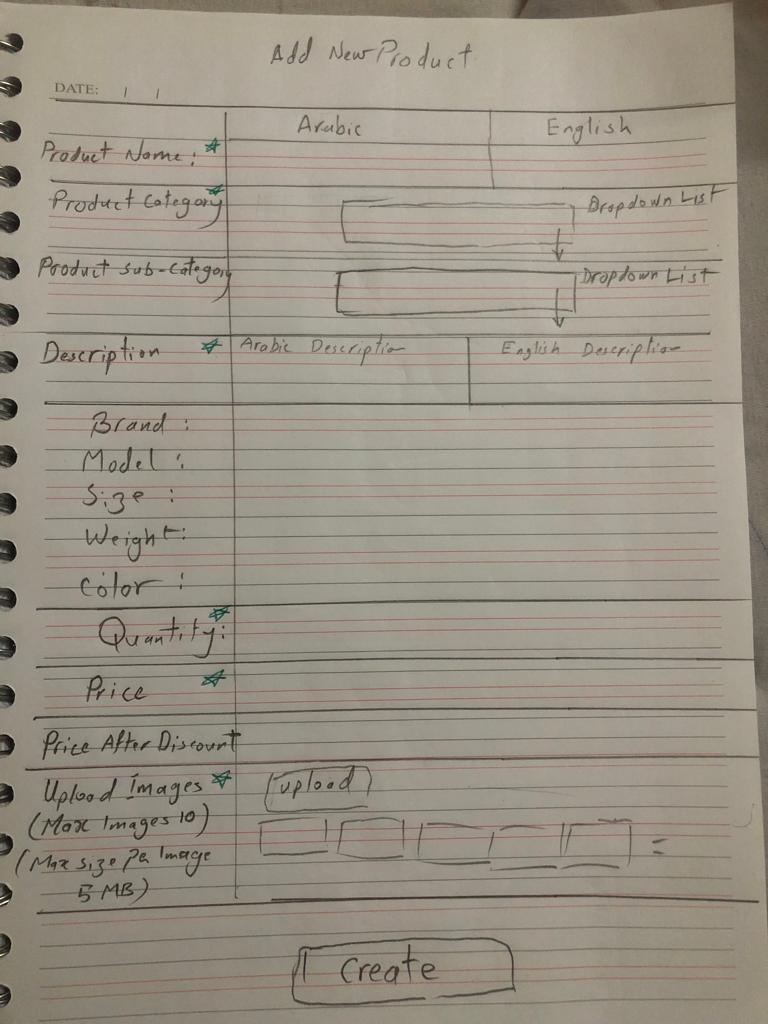 Add New Product
DATE: / /
Arabic English
Product Name: *
Product Category * Dropdown List
Product sub-category Dropdown List
Description * Arabic Description English Description
Brand :
Model :
Size :
Weight:
Color :
Quantity: *
Price *
Price After Discount
Upload Images * upload
(Max Images 10)
(Max size per Image
5 MB)
Create